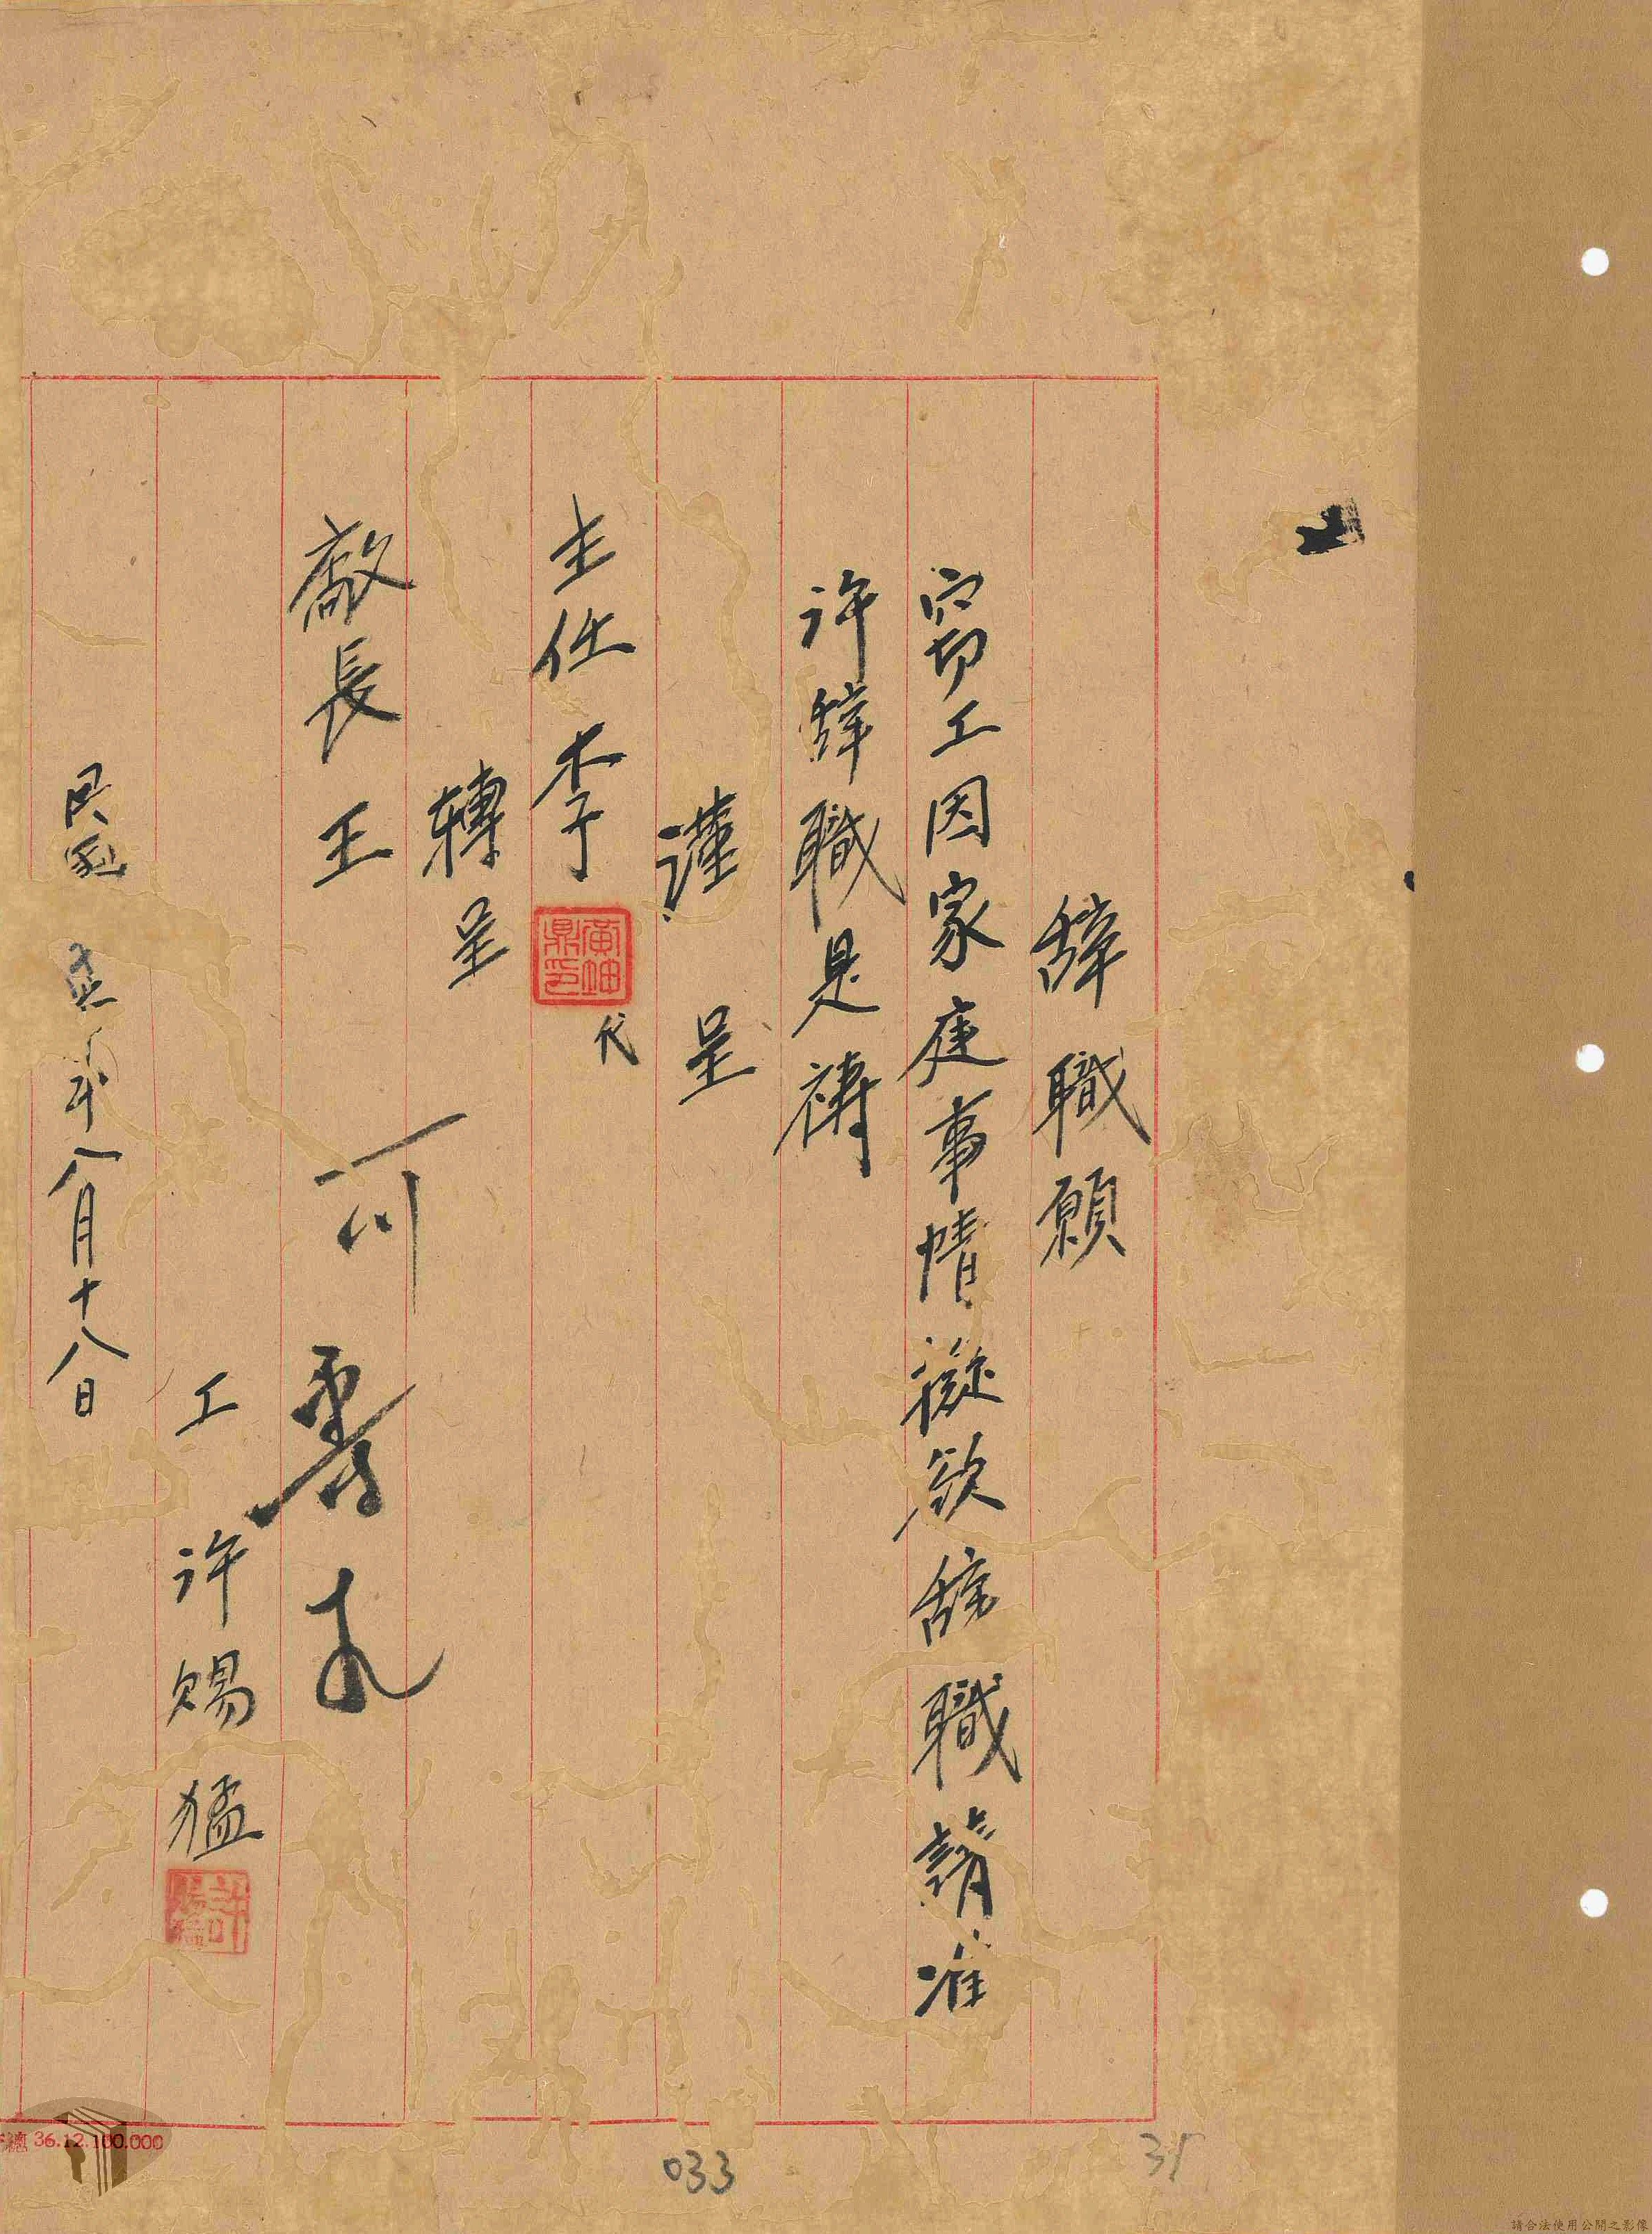 辭職願
窃工因家庭事情擬欲辞職請准
許辭職是禱
謹呈
主任李
代
轉呈
廠長王
可
工許賜猛
民國 年八月十八日
36.12.100.000
033
31
請合法使用公開之影像